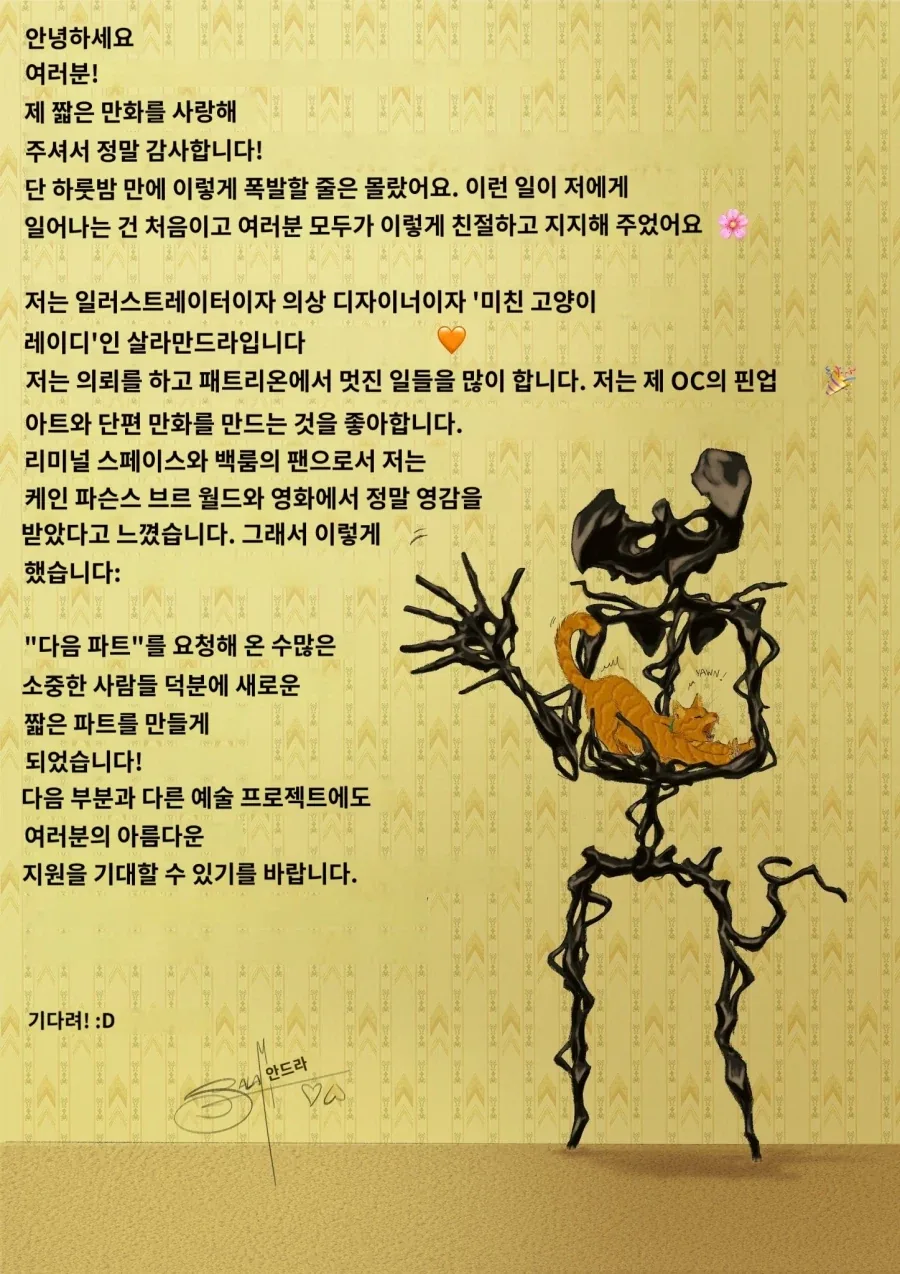 안녕하세요
여러분!
제 짧은 만화를 사랑해
주셔서 정말 감사합니다!
단 하룻밤 만에 이렇게 폭발할 줄은 몰랐어요. 이런 일이 저에게
일어나는 건 처음이고 여러분 모두가 이렇게 친절하고 지지해 주었어요 🌸
저는 일러스트레이터이자 의상 디자이너이자 '미친 고양이
레이디'인 살라만드라입니다 🧡
저는 의뢰를 하고 패트리온에서 멋진 일들을 많이 합니다. 저는 제 OC의 핀업 🎉
아트와 단편 만화를 만드는 것을 좋아합니다.
리미널 스페이스와 백룸의 팬으로서 저는
케인 파슨스 브르 월드와 영화에서 정말 영감을
받았다고 느꼈습니다. 그래서 이렇게
했습니다:
"다음 파트"를 요청해 온 수많은
소중한 사람들 덕분에 새로운
짧은 파트를 만들게
되었습니다!
다음 부분과 다른 예술 프로젝트에도
여러분의 아름다운
지원을 기대할 수 있기를 바랍니다.
YAWN!
기다려! :D
SALAM안드라